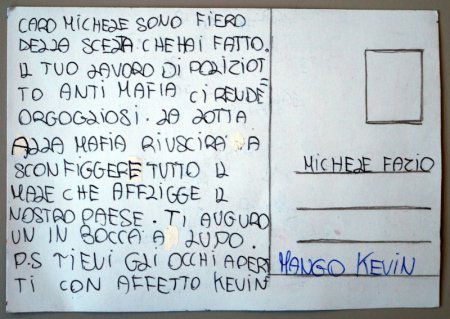 CARO MICHELE SONO FIERO
DELLA SCELTA CHE HAI FATTO.
IL TUO LAVORO DI POLIZIOT
TO ANTI MAFIA CI RENDE
ORGOGLIOSI. LA LOTTA
ALLA MAFIA RIUSCIRÀ A
SCONFIGGERE TUTTO IL
MALE CHE AFFLIGGE IL
NOSTRO PAESE. TI AUGURO
UN IN BOCCA A LUPO.
P.S TIENI GLI OCCHI APER
TI CON AFFETTO KEVIN
MICHELE FAZIO
MANGO KEVIN